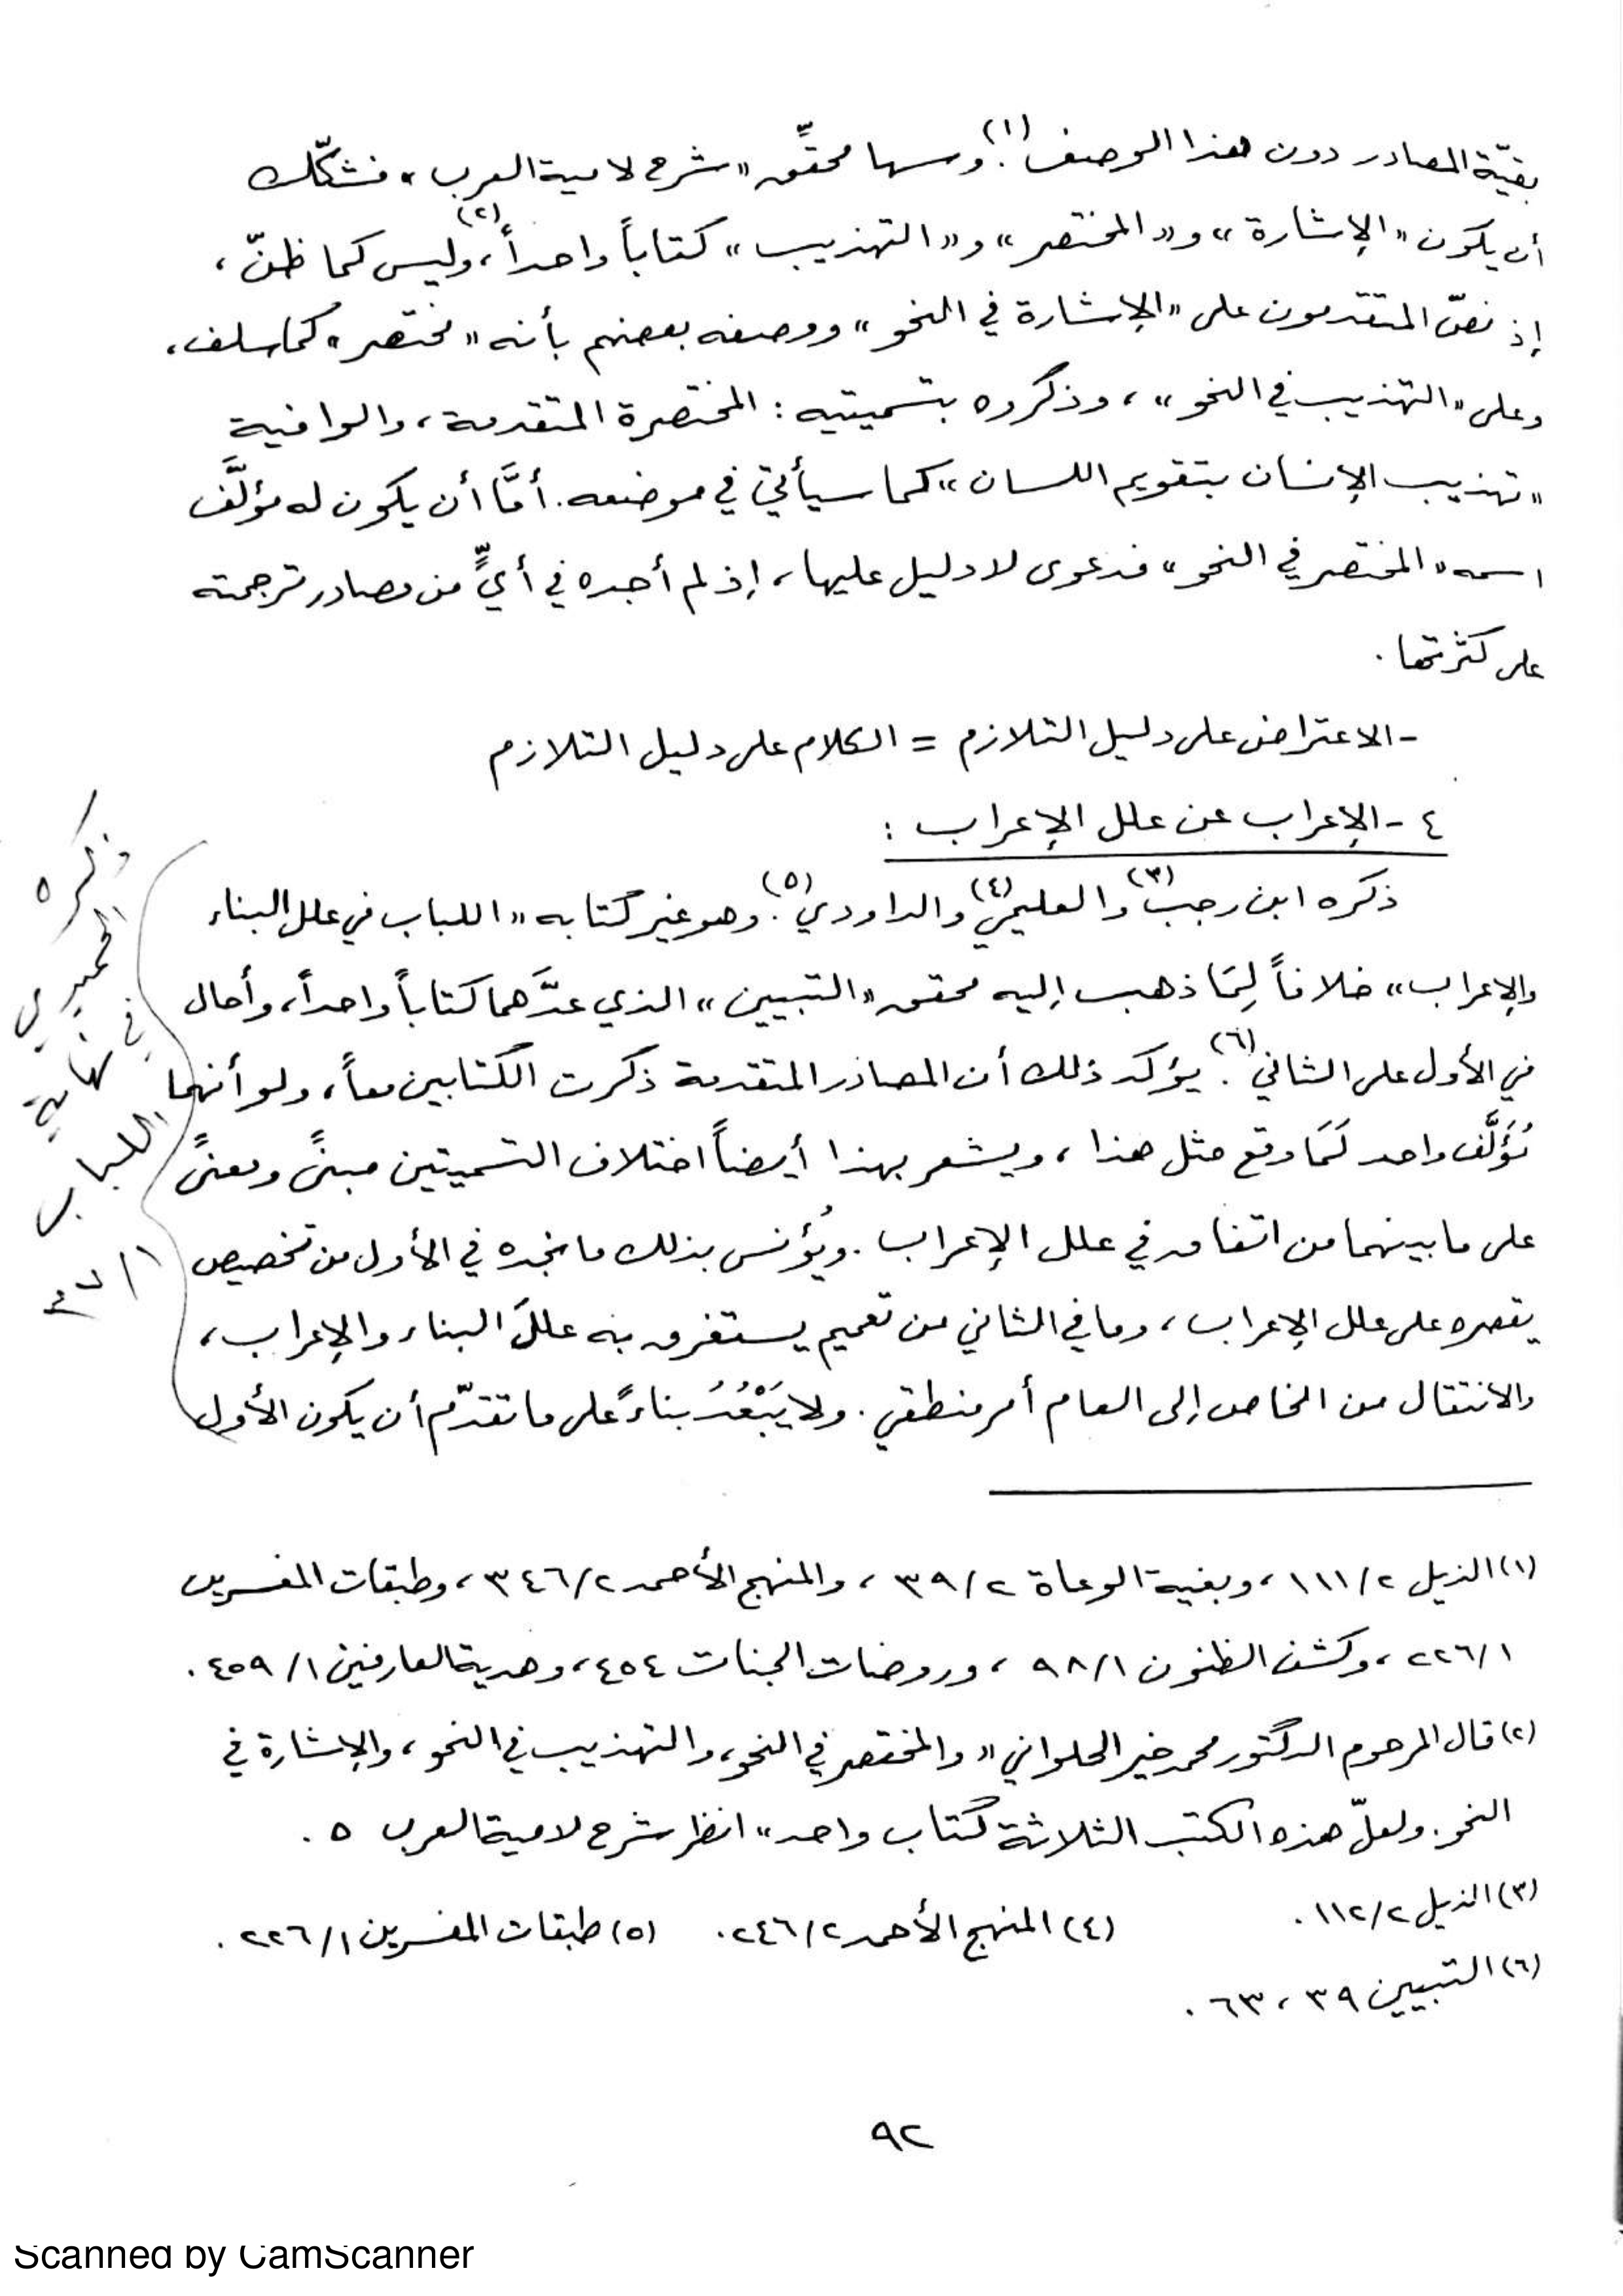 بقيّة المصادر دون هذا الوصف(١). وسها محقّق «شرح لامية العرب» فشكّك
أن يكون «الإشارة» و«المختصر» و«التهذيب» كتاباً واحداً(٢)، وليس كما ظنّ،
إذ نصّ المتقدمون على «الإشارة في النحو» ووصفه بعضهم بأنه «مختصر» كما سلف،
وعلى «التهذيب في النحو»، وذكروه بتسميتيه: المختصرة المتقدمة، والوافية
«تهذيب الإنسان بتقويم اللسان» كما سيأتي في موضعه. أمَّا أن يكون له مؤلَّف
اسمه «المختصر في النحو» فدعوى لا دليل عليها، إذ لم أجده في أيٍّ من مصادر ترجمته
على كثرتها.
- الاعتراض على دليل التلازم = الكلام على دليل التلازم
٤ - الإعراب عن علل الإعراب:
ذكره ابن رجب(٣) والعليمي(٤) والداودي(٥). وهو غير كتابه «اللباب في علل البناء
والإعراب» خلافاً لِمَا ذهب إليه محقق «التبيين» الذي عدَّهما كتاباً واحداً، وأحال
في الأول على الثاني(٦). يؤكد ذلك أن المصادر المتقدمة ذكرت الكتابين معاً، ولو أنهما
مُؤَلَّف واحد لَمَا وقع مثل هذا، ويشعر بهذا أيضاً اختلاف التسميتين مبنىً ومعنىً
على ما بينهما من اتفاق في علل الإعراب. ويُؤنس بذلك ما نجده في الأول من تخصيص
يقصره على علل الإعراب، وما في الثاني من تعميم يستغرق به عللَ البناء والإعراب،
والانتقال من الخاص إلى العام أمر منطقي. ولا يَبْعُدُ بناءً على ما تقدّم أن يكون الأول
ذكره
الحميدي
في نهاية
اللباب
(١) الذيل ١١١/٢، وبغية الوعاة ٣٩/٢، والمنهج الأحمد ٣٤٦/٢، وطبقات المفسرين
٢٢٦/١، وكشف الظنون ٩٨/١، وروضات الجنات ٤٥٤، وهدية العارفين ٤٥٩/١.
(٢) قال المرحوم الدكتور محمد خير الحلواني «والمختصر في النحو، والتهذيب في النحو، والإشارة في
النحو. ولعلّ هذه الكتب الثلاثة كتاب واحد» انظر شرح لامية العرب ٥.
(٣) الذيل ١١٢/٢. (٤) المنهج الأحمد ٢٤٦/٢. (٥) طبقات المفسرين ٢٢٦/١.
(٦) التبيين ٣٩، ٦٣.
٩٢
Scanned by CamScanner